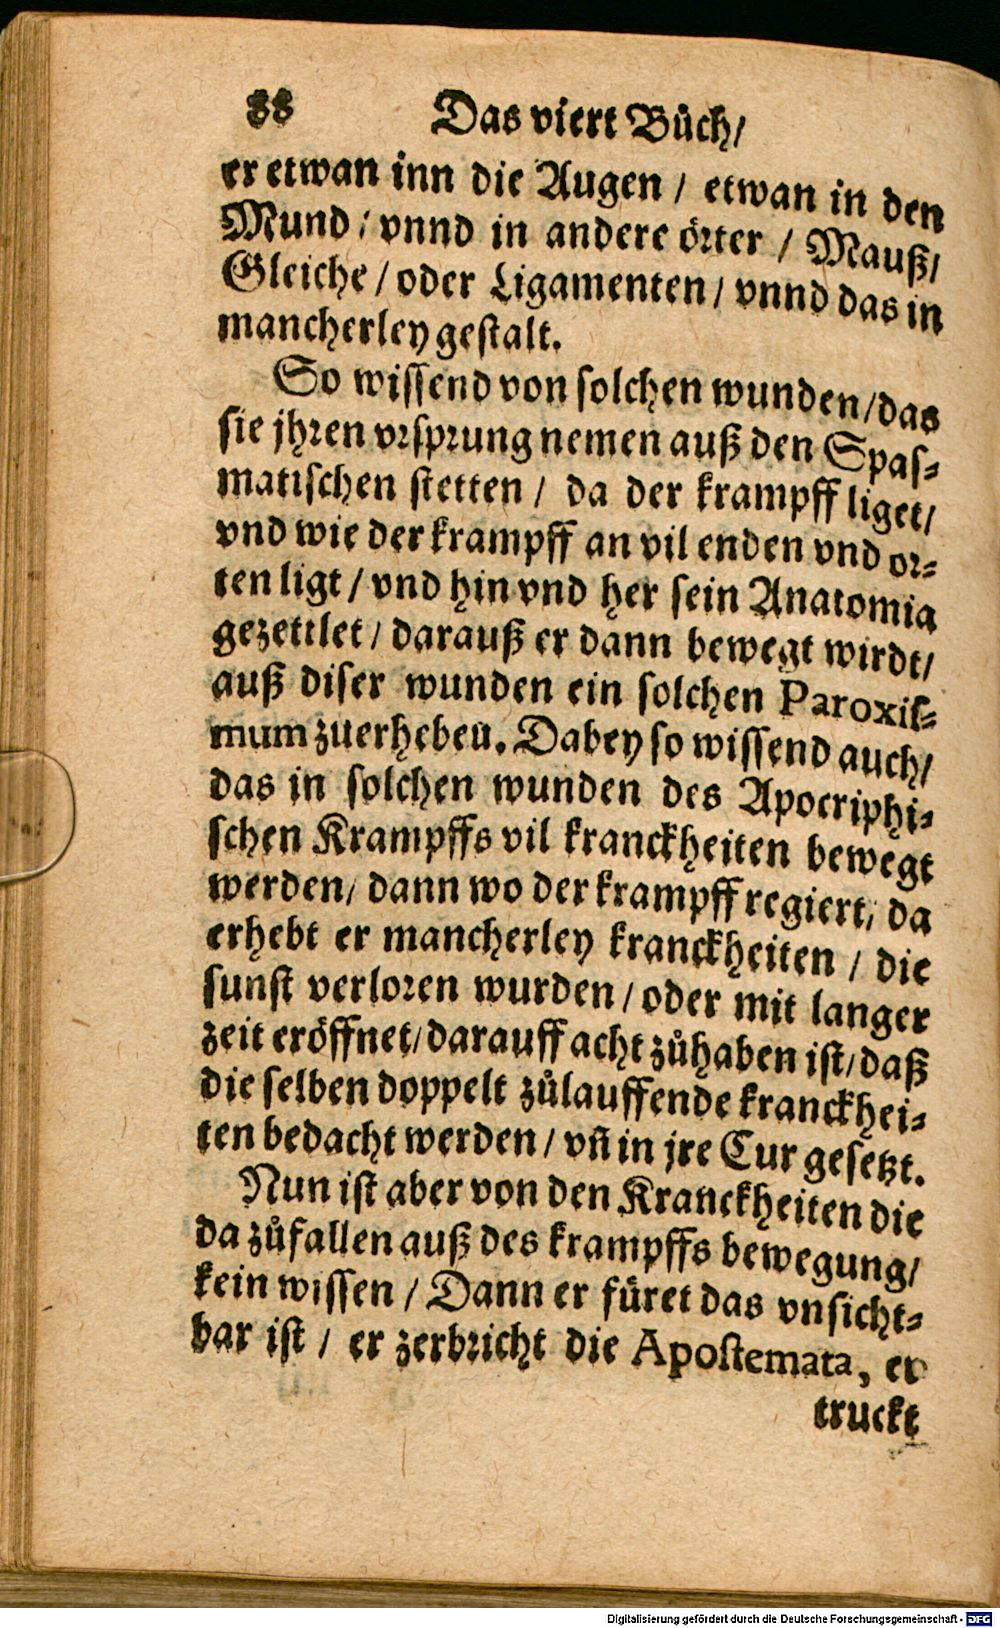 88 Das viert Bůch/
er etwan inn die Augen / etwan in den
Mund / vnnd in andere oͤrter / Mauß/
Gleiche / oder Ligamenten / vnnd das in
mancherley gestalt.
So wissend von solchen wunden/das
sie jhren vrsprung nemen auß den Spas-
matischen stetten / da der krampff liget/
vnd wie der krampff an vil enden vnd or-
ten ligt / vnd hin vnd her sein Anatomia
gezettlet / darauß er dann bewegt wirdt/
auß diser wunden ein solchen Paroxis-
mum zuerhebeu. Dabey so wissend auch/
das in solchen wunden des Apocriphi-
schen Krampffs vil kranckheiten bewegt
werden/ dann wo der krampff regiert/ da
erhebt er mancherley kranckheiten / die
sunst verloren wurden / oder mit langer
zeit eröffnet/darauff acht zůhaben ist/daß
die selben doppelt zůlauffende kranckhei-
ten bedacht werden / vñ in jre Cur gesetzt.
Nun ist aber von den Kranckheiten die
da zůfallen auß des krampffs bewegung/
kein wissen / Dann er füret das vnsicht-
bar ist / er zerbricht die Apostemata, er
truckt
Digitalisierung gefördert durch die Deutsche Forschungsgemeinschaft - DFG